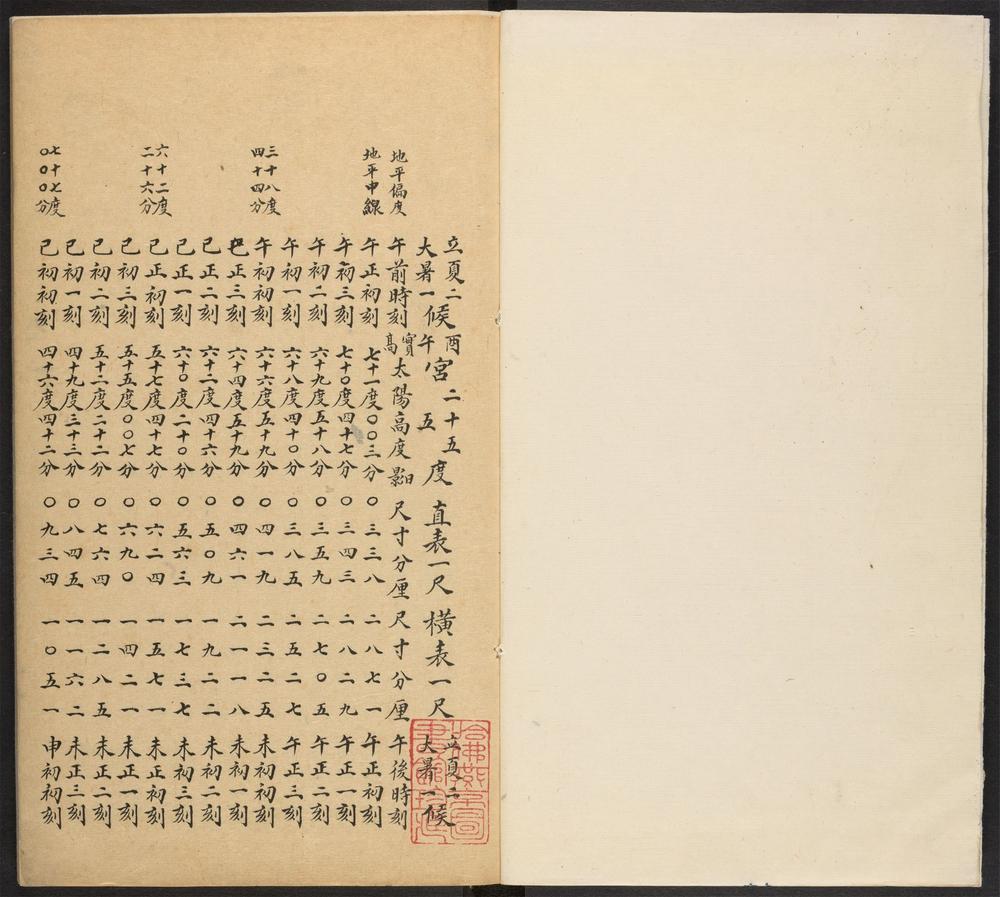 立夏二大暑一候 酉午宮 二十五五度 直表一尺 橫表一尺 立夏二大暑一候
地平偏度 午前時刻 實高太陽高度 日影尺寸分厘 尺寸分厘 午後時刻
地平中線 午正初刻 七十一度〇〇三分 〇三三八 二八七一 午正初刻
午初三刻 七十〇度四十七分 〇三四三 二八二九 午正一刻
午初二刻 六十九度五十八分 〇三五九 二七〇五 午正二刻
午初一刻 六十八度四十〇分 〇三八五 二五二七 午正三刻
三十八度四十四分 午初初刻 六十六度五十九分 〇四一九 二三二五 未初初刻
巳正三刻 六十四度五十九分 〇四六一 二一一八 未初一刻
巳正二刻 六十二度四十六分 〇五〇九 一九二二 未初二刻
巳正一刻 六十〇度二十〇分 〇五六三 一七三七 未初三刻
六十二度二十六分 巳正初刻 五十七度四十七分 〇六二四 一五七一 未正初刻
巳初三刻 五十五度〇〇七分 〇六九〇 一四二一 未正一刻
巳初二刻 五十二度二十二分 〇七六四 一二八五 未正二刻
巳初一刻 四十九度三十三分 〇八四五 一一六二 未正三刻
七十七度〇〇〇分 巳初初刻 四十六度四十二分 〇九三四 一〇五一 申初初刻